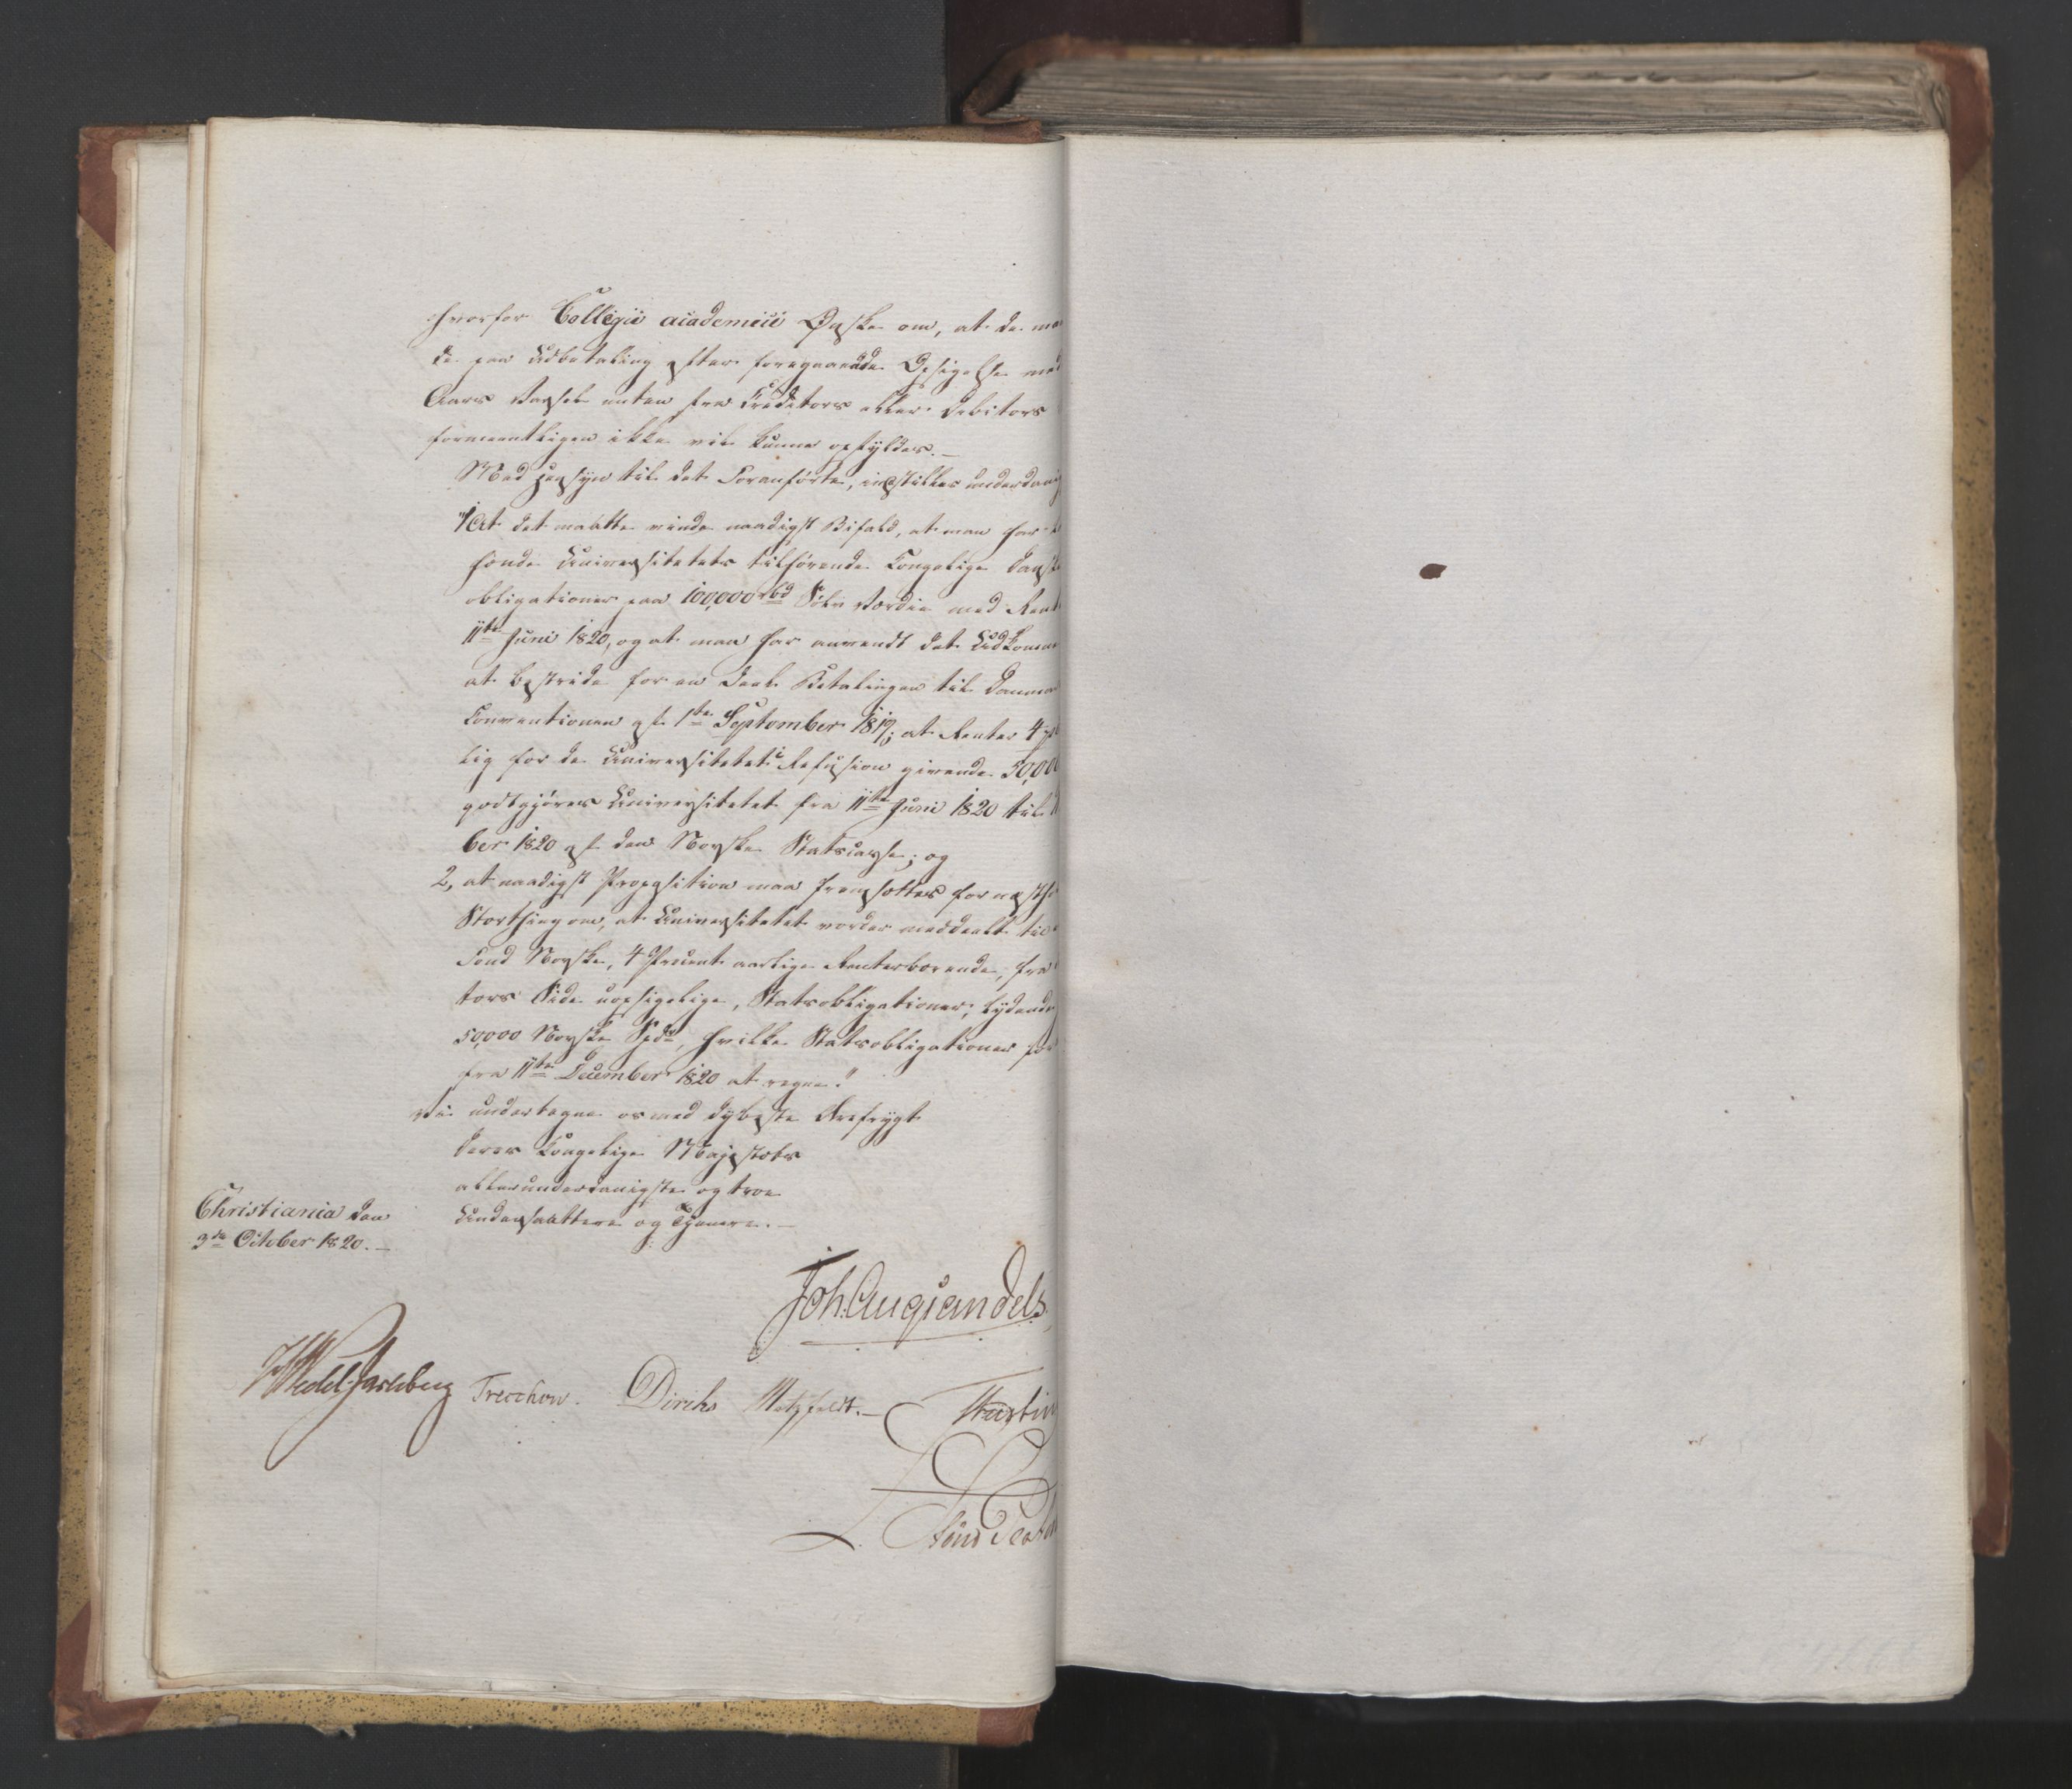 hvorfor Collegii academici Ønske om, at de maa
de paa Udbetaling efter foregaaende Opsigelse med
Aars Varsel enten fra Creditors eller Debitors
formeentligen ikke vil kunne opfyldes. —
Med Hensyn til det Foranførte, indstilles underdanig
"1, At det maatte vinde naadigst Bifald, at man har
hænde Universitetets tilhørende Kongelige Danske
obligationer paa 100,000 rbd Sølv Værdie med Rente
11te Juni 1820, og at man har anvendt det Udkomne
at bestride for en Deel Betalingen til Danma
Conventionen af 1te September 1819; at Renter 4 p
lig for de Universitetet i Refusion givende 50,00
godtgjøres Universitetet fra 11te Juni 1820 til
ber 1820 af den Norske Statscasse; og
2, at naadigst Proposition maa fremsættes for næsthol
Storthing om, at Universitetet vorder meddeelt til
Fond Norske, 4 Procent aarlige Renter bærende, fra
tors Side uopsigelige, Statsobligationer, lydende
50,000 Norske Spdr, hvilke Statsobligationer
fra 11te December 1820 at regne."
Vi undertegne os med dybeste Ærefrygt
Deres Kongelige Majestæts
allerunderdanigste og troe
Undersaattere og Tjenere. —
Christiania den
3de October 1820. —
Joh. Aug Sandels.
HWedel Jarlsberg Treschow. Diriks Motzfeldt. —